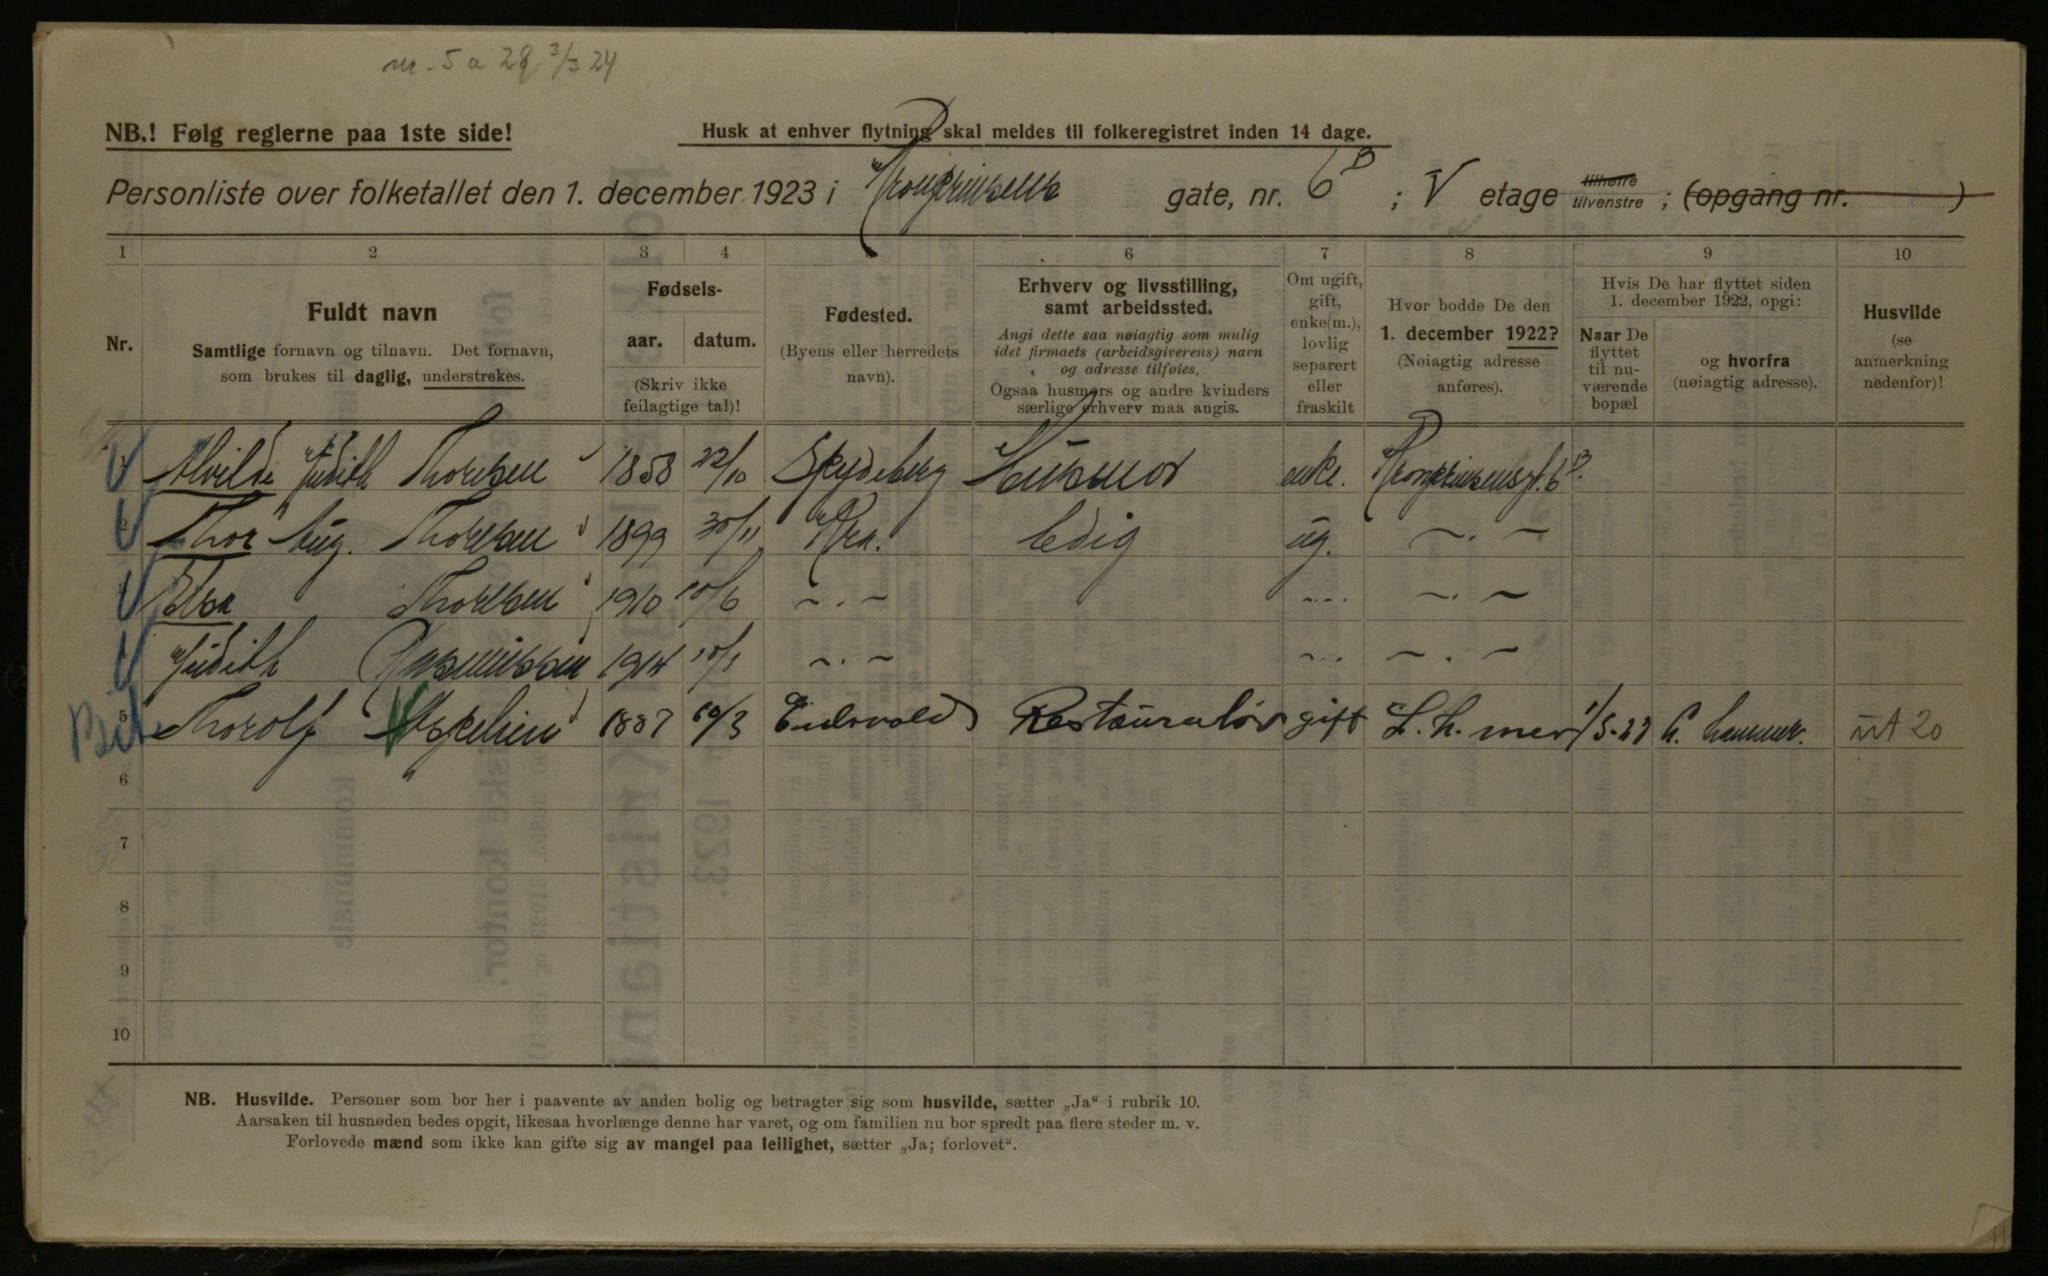 nr. 5 a 28 3/3 24
NB.! Følg reglerne paa 1ste side!
Husk at enhver flytning skal meldes til folkeregistret inden 14 dage.
Personliste over folketallet den 1. december 1923 i Kronprinsens gate, nr. 6 B ; V etage tilhøire tilvenstre ; (opgang nr. )
1 2 3 4 6 7 8 9 10
Nr.
Fuldt navn
Samtlige fornavn og tilnavn. Det fornavn,
som brukes til daglig, understrekes.
Fødsels-
aar. datum.
(Skriv ikke
feilagtige tal)!
Fødested.
(Byens eller herredets
navn).
Erhverv og livsstilling,
samt arbeidssted.
Angi dette saa nøiagtig som mulig
idet firmaets (arbeidsgiverens) navn
og adresse tilføies.
Ogsaa husmørs og andre kvinders
særlige erhverv maa angis.
Om ugift,
gift,
enke(m.),
lovlig
separert
eller
fraskilt
Hvor bodde De den
1. december 1922?
(Nøiagtig adresse
anføres).
Hvis De har flyttet siden
1. december 1922, opgi:
Naar De
flyttet
til nu-
værende
bopæl
og hvorfra
(nøiagtig adresse).
Husvilde
(se
anmerkning
nedenfor)!
Alvilde Judith Thoresen 1858 22/10 Skydeberg Husmor enke. Kronprinsensgt. 6 B.
2 Thor Aug. Thoresen 1899 30/11 Kra. ledig ug. – . –
Elsa Thoresen 1910 10/6 – . – – . – – . –
Judith Rasmussen 1914 10/1 – . – – . – – . –
5 Thorolf 1887 10/3 Eidsvold Restauratør gift L. h. mer 1/5-23 ut 20
6
7
8
9
10
NB. Husvilde. Personer som bor her i paavente av anden bolig og betragter sig som husvilde, sætter „Ja“ i rubrik 10.
Aarsaken til husnøden bedes opgit, likesaa hvorlænge denne har varet, og om familien nu bor spredt paa flere steder m. v.
Forlovede mænd som ikke kan gifte sig av mangel paa leilighet, sætter „Ja; forlovet“.